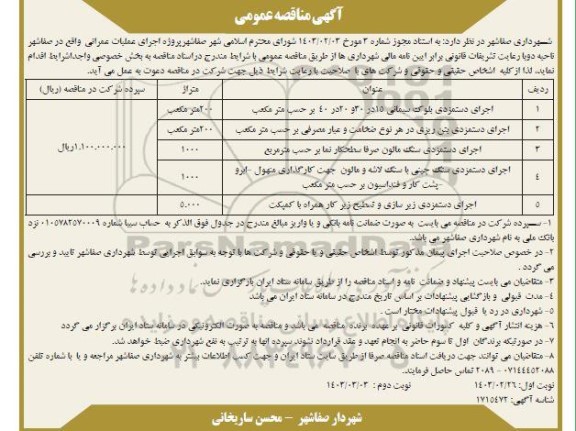 آگهی مناقصه عمومی
شهرداری صفاشهر در نظر دارد: به استناد مجوز شماره ۳ مورخ ۱۴۰۳/۰۲/۰۳ شورای محترم اسلامی شهر صفاشهر پروژه اجرای عملیات عمرانی واقع در صفاشهر
ناحیه دو با رعایت تشریفات قانونی برابر آیین نامه مالی شهرداری ها از طریق مناقصه عمومی با شرایط مندرج در اسناد مناقصه به بخش خصوصی واجد شرایط اقدام
نماید. لذا از کلیه اشخاص حقیقی و حقوقی و شرکت های با صلاحیت با رعایت شرایط ذیل جهت شرکت در مناقصه دعوت به عمل می آید.
ردیف عنوان متراژ سپرده شرکت در مناقصه (ریال)
۱ اجرای دستمزدی بلوک سیمانی ۱۵در ۲۰و ۲۰در ۴۰ بر حسب متر مکعب ۲۰۰متر مکعب
۲ اجرای دستمزدی بتن ریزی در هر نوع ضخامت و عیار مصرفی بر حسب متر مکعب ۲۰۰متر مکعب
۳ اجرای دستمزدی سنگ مالون صرفا سطحکار نما بر حسب مترمربع ۱۰۰۰ ۱.۱۰۰.۰۰۰.۰۰۰ریال
۴ اجرای دستمزدی سنگ چینی با سنگ لاشه و مالون جهت کارگذاری منهول -ابرو
-پشت کار و فنداسیون بر حسب متر مکعب ۱۰۰۰
۵ اجرای دستمزدی زیر سازی و تسطیح زیر کار همراه با کمپکت ۵.۰۰۰
۱- سپرده شرکت در مناقصه می بایست به صورت ضمانت نامه بانکی و یا واریز مبالغ مندرج در جدول فوق الذکر به حساب سیبا شماره ۰۱۰۵۷۸۲۵۷۰۰۰۹ نزد
بانک ملی به نام شهرداری صفاشهر می باشد.
۲- در خصوص صلاحیت اجرای پیمان مذکور توسط اشخاص حقیقی و یا حقوقی و شرکت ها با توجه به سوابق اجرایی توسط شهرداری صفاشهر تایید و بررسی
می گردد .
۳- متقاضیان می بایست پیشنهاد و ضمانت نامه و اسناد مناقصه را از طریق سامانه ستاد ایران بارگزاری نماید.
۴- مدت قبولی و بازگشایی پیشنهادات بر اساس تاریخ مندرج در سامانه ستاد ایران می باشد
۵- شهرداری در رد یا قبول پیشنهادات مختار است .
۶- هزینه انتشار آگهی و کلیه کسورات قانونی بر عهده برنده مناقصه می باشد و مناقصه به صورت الکترونیکی در سامانه ستاد ایران برگزار می گردد
۷- در صورتیکه برندگان اول تا سوم حاضر به انجام تعهد و عقد قرارداد نشوند سپرده آنها به ترتیب به نفع شهرداری ضبط خواهد شد.
۸- متقاضیان می توانند جهت دریافت اسناد مناقصه صرفا از طریق سایت ستاد ایران و جهت کسب اطلاعات بیشتر به شهرداری صفاشهر مراجعه و یا با شماره تلفن
۰۷۱۴۴۴۵۲۰۸۸ - ۲۰۸۹ تماس حاصل فرمایند.
نوبت اول: ۱۴۰۳/۰۲/۲۶ نوبت دوم : ۱۴۰۳/۰۳/۰۳
شناسه آگهی: ۱۷۱۵۴۷۲
شهردار صفاشهر - محسن ساریخانی